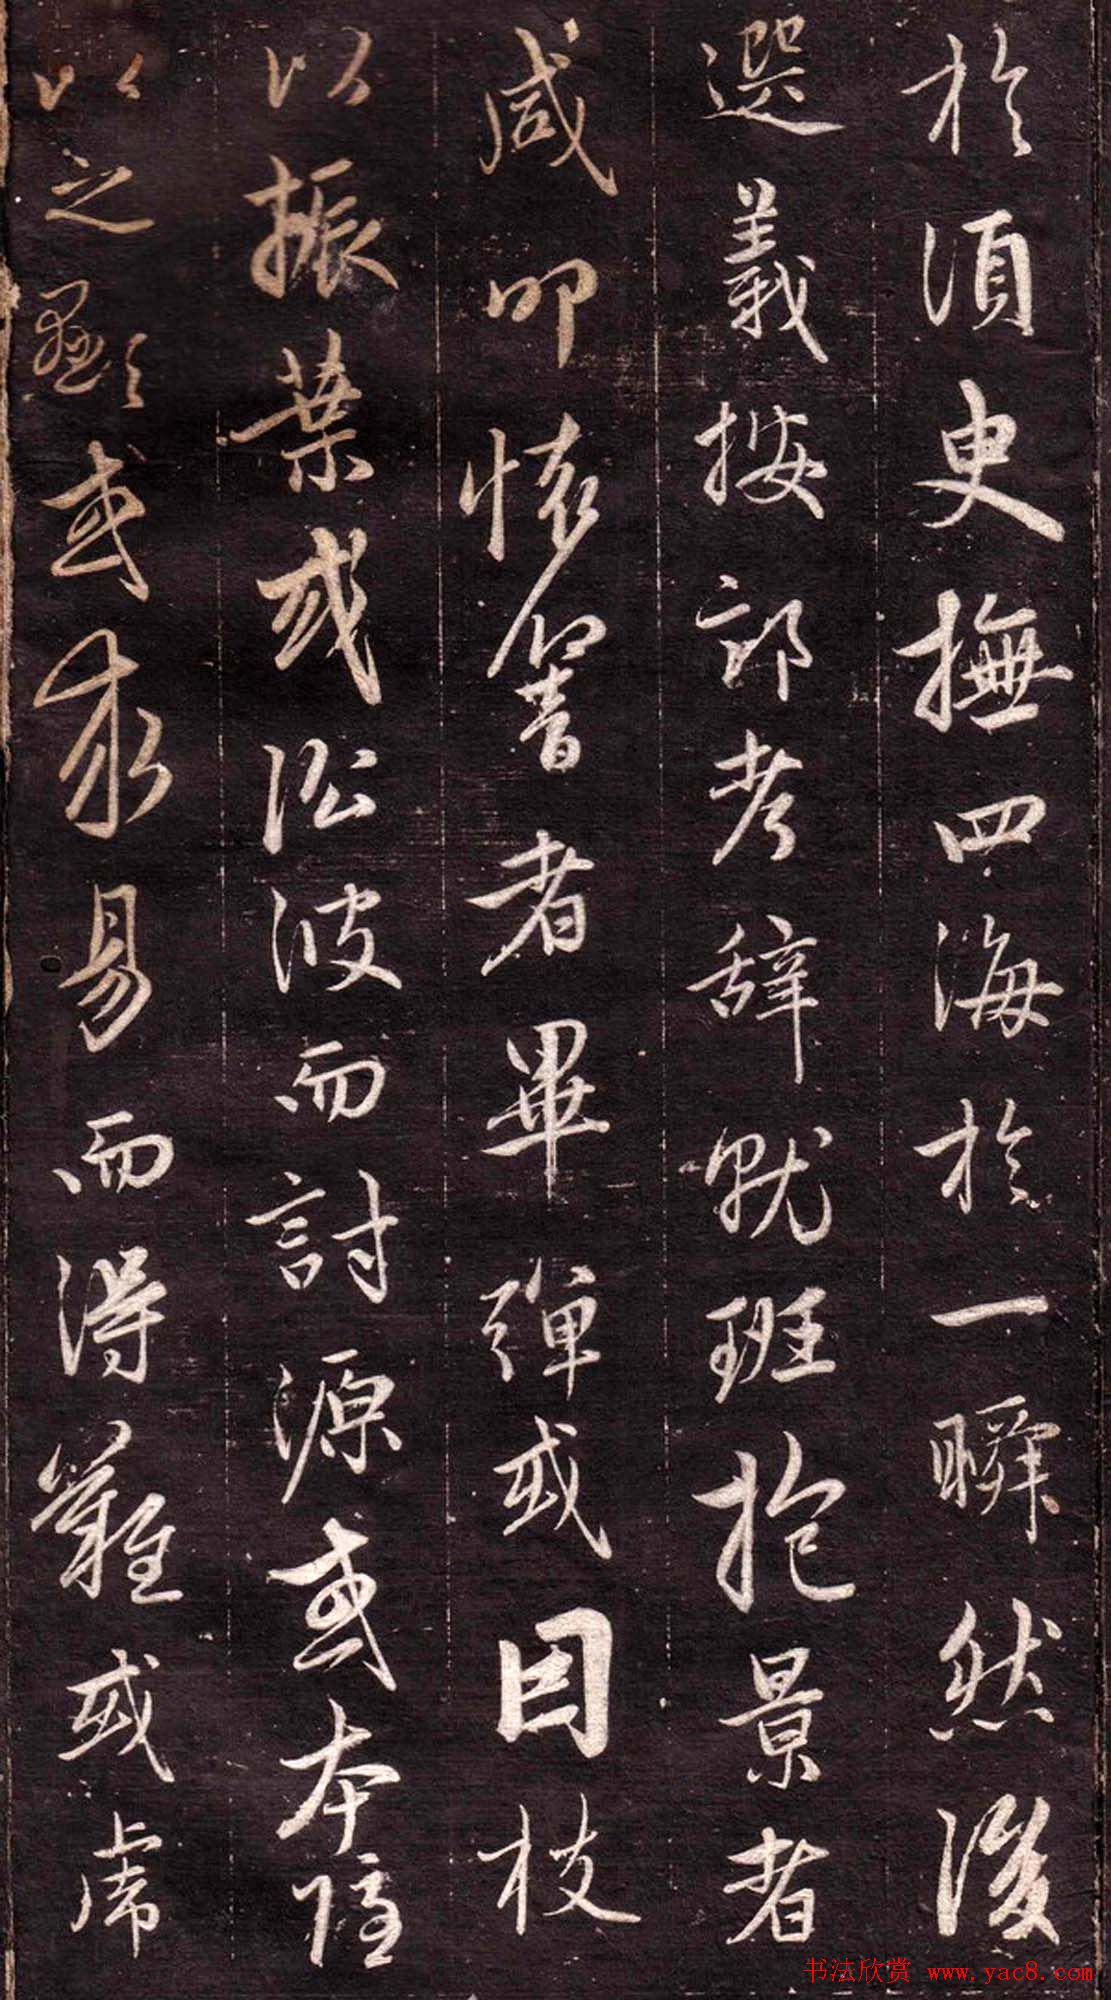 於須臾撫四海於一瞬然後
選義按部考辭就班抱景者
咸叩懷響者畢彈或因枝
以振葉或沿波而討源或本隱
以之顯或求易而得難或虎
书法欣赏 www.yac8.com